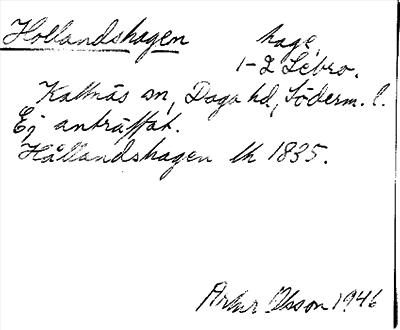 Hollandshagen hage,
1-2 Sebro.
Kattnäs sn, Daga hd, Söderm. l.
Ej anträffat.
Hållandshagen lk 1835.
Artur Olsson 1946